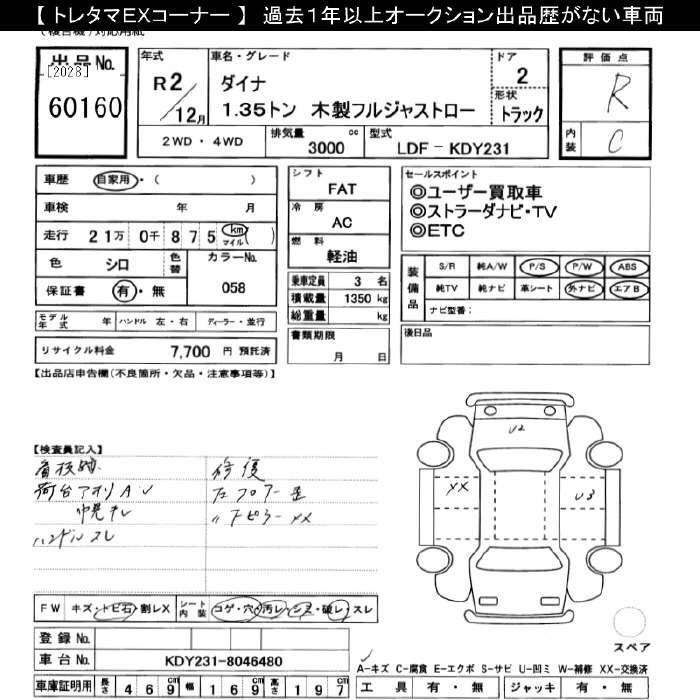 【 トレタマＥＸコーナー 】 過去１年以上オークション出品歴がない車両
出品No.
[2028]
60160
年式
R2/12月
車名・グレード
ダイナ
1.35トン 木製フルジャストロー
ドア
2
形状
トラック
2WD・4WD
排気量
3000 cc
型式
LDF-KDY231
評価点
R
内装
C
車歴 自家用・( )
車検 年 月
走行 21万 0千 875 km マイル( )
色 シロ 色替
カラーNo.
058
保証書 有・無
シフト
FAT
冷房
AC
燃料
軽油
乗車定員 3 名
積載量 1350 kg
総重量 kg
セールスポイント
◎ユーザー買取車
◎ストラーダナビ・TV
◎ETC
装備品
S/R 純A/W P/S P/W ABS
純TV 純ナビ 革シート 外ナビ エアB
ナビ型番：
モデル年式 年 ハンドル 左・右 ディーラー・並行
リサイクル料金 7,700 円 預託済
書類期限
月 日
後日品
【出品店申告欄(不良箇所・欠品・注意事項等)】
【検査員記入】
看板跡
荷台アオリA、U
ハンドルスレ
修復
U2
XX
U3
FW キズ・トビ石・割レX
シート内装 コゲ・穴・汚レ・シミ・破レ・スレ
登録No.
車台No. KDY231-8046480
車庫証明用 長さ 469 cm 幅 169 cm 高さ 197 cm
スペア
A-キズ C-腐食 E-エクボ S-サビ U-凹ミ W-補修 XX-交換済
工具 有・無 ジャッキ 有・無